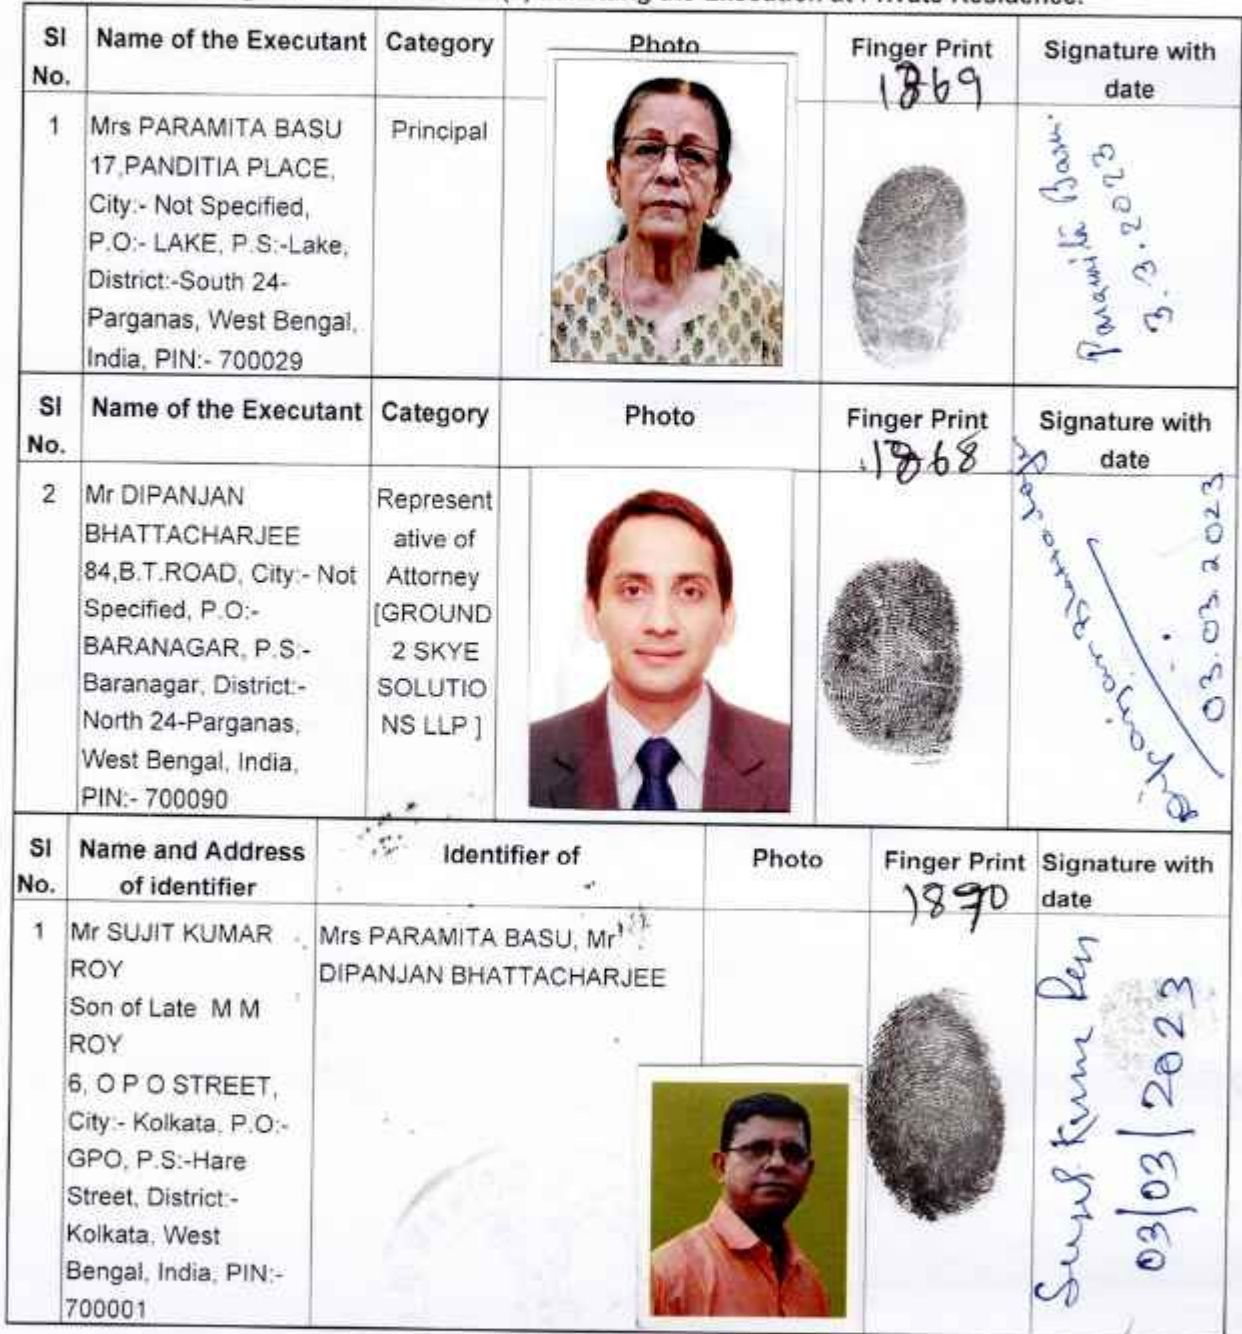 the Execution at Private Residence.
Sl No.
Name of the Executant
Category
Photo
Finger Print
1869
Signature with date
1
Mrs PARAMITA BASU
17,PANDITIA PLACE,
City:- Not Specified,
P.O:- LAKE, P.S:-Lake,
District:-South 24-
Parganas, West Bengal,
India, PIN:- 700029
Principal
Paramita Basu.
3.3.2023
Sl No.
Name of the Executant
Category
Photo
Finger Print
1868
Signature with date
2
Mr DIPANJAN
BHATTACHARJEE
84,B.T.ROAD, City:- Not
Specified, P.O:-
BARANAGAR, P.S:-
Baranagar, District:-
North 24-Parganas,
West Bengal, India,
PIN:- 700090
Represent
ative of
Attorney
[GROUND
2 SKYE
SOLUTIO
NS LLP ]
Dipanjan Bhattacharjee
03.03.2023
Sl No.
Name and Address
of identifier
Identifier of
Photo
Finger Print
1870
Signature with date
1
Mr SUJIT KUMAR
ROY
Son of Late M M
ROY
6, O P O STREET,
City:- Kolkata, P.O:-
GPO, P.S:-Hare
Street, District:-
Kolkata, West
Bengal, India, PIN:-
700001
Mrs PARAMITA BASU, Mr
DIPANJAN BHATTACHARJEE
Sujit Kumar Roy
03/03/2023